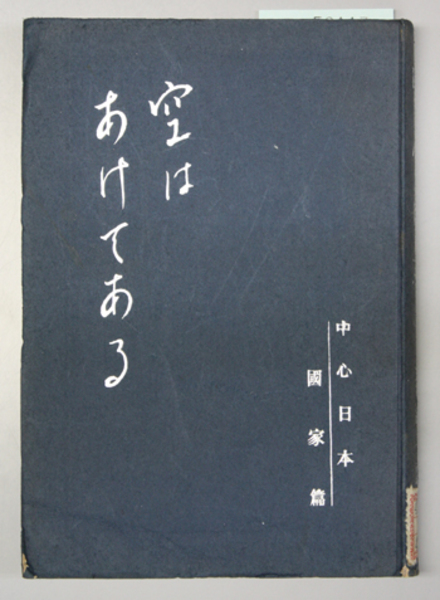 空は
あけてある
中心日本
國家篇